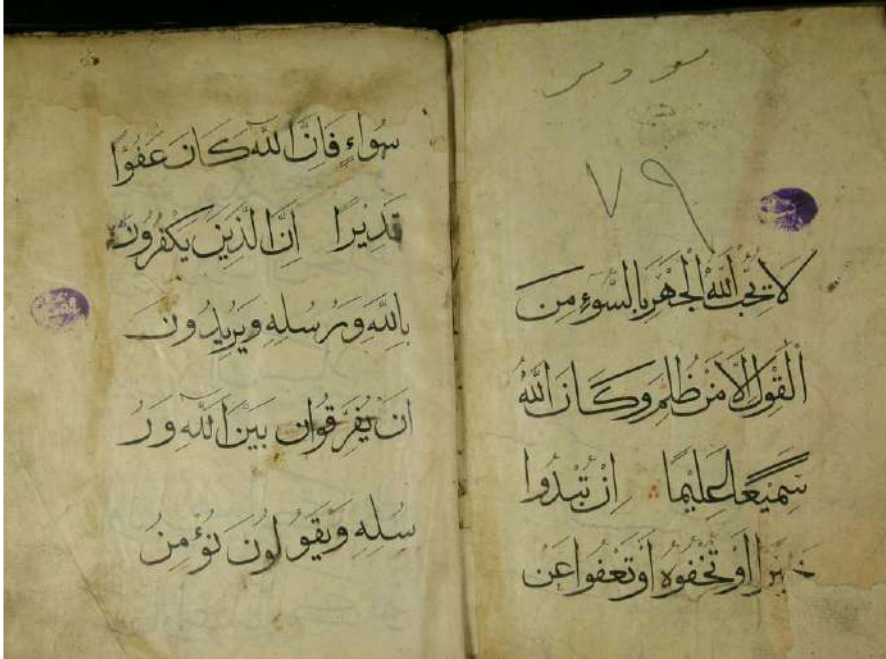 ٧٩
لَا يُحِبُّ اللّٰهُ الْجَهْرَ بِالسُّوءِ مِنَ
الْقَوْلِ اِلَّا مَنْ ظُلِمَ وَكَانَ اللّٰهُ
سَمِيْعًا عَلِيْمًا اِنْ تُبْدُوا
خَيْرًا اَوْ تُخْفُوْهُ اَوْ تَعْفُوا عَنْ
سُوءٍ فَاِنَّ اللّٰهَ كَانَ عَفُوًّا
قَدِيْرًا اِنَّ الَّذِيْنَ يَكْفُرُوْنَ
بِاللّٰهِ وَرُسُلِهِ وَيُرِيْدُوْنَ
اَنْ يُفَرِّقُوان بَيْنَ اللّٰهِ وَرُ
سُلِهِ وَيَقُوْلُوْنَ نُؤْمِنُ